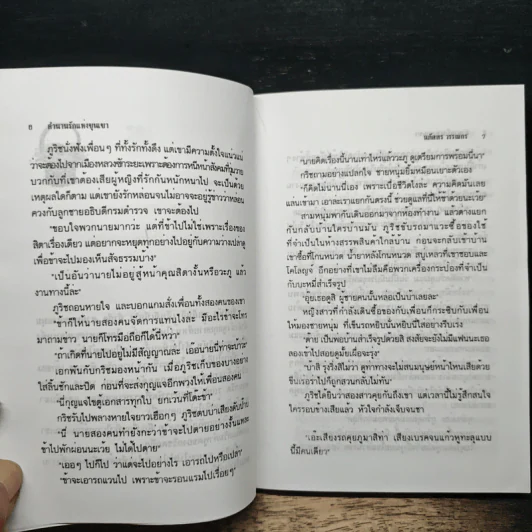 6 ตำนานรักแห่งขุนเขา
ภูริชนั่งฟังเพื่อนๆ ที่ทั้งรักทั้งดึง แต่เขามีความตั้งใจแน่วแน่
ว่าจะต้องไปจากเมืองหลวงซักระยะเพราะต้องการหนีหน้าสังคมที่วุ่นวาย
บวกกับที่เขาต้องเสียผู้หญิงที่รักกันหนักหนาไป จะเป็นด้วย
เหตุผลใดก็ตาม แต่เขายังรักหล่อนจนไม่อาจจะอยู่รู้ข่าวว่าหล่อน
ควงกับลูกชายอธิบดีกรมตำรวจ เขาจะต้องไป
"ขอบใจพวกนายมากวะ แต่ที่ข้าไปไม่ใช่เพราะเรื่องของ
สิตาเรื่องเดียว แต่อยากจะหยุดทุกอย่างไปอยู่กับความว่างเปล่าดู
เพื่อข้าจะไปมองเห็นสัจธรรมบ้าง"
"เป็นอันว่านายไม่อยู่ สู้หน้าคุณสิตางั้นหรือวะภู แล้ว
งานทางนี้ล่ะ"
ภูริชถอนหายใจ และบอกแกมสั่งเพื่อนทั้งสองคนของเขา
"ข้าก็ให้นายสองคนจัดการแทนไงล่ะ มีอะไรข้าจะโทร
มาถามข่าว นายก็โทรมือถือก็ได้นี่หว่า"
"ถ้าเกิดที่นายไปอยู่ไม่มีสัญญาณล่ะ เออนายนี่ท่าจะบ้าว่ะ"
เอกพันกับกริชมองหน้ากัน เมื่อภูริชเก็บของบางอย่าง
ใส่ลิ้นชักและปิด ก่อนที่จะส่งกุญแจอีกพวงให้เพื่อนสองคน
"นี่กุญแจไขตู้เอกสารทุกใบ ยกเว้นที่โต๊ะข้า"
กริชรับไปพลางหายใจยาวเฮือกๆ ภูริชตบบ่าเสียงดังป้าบ
"นี่ นายสองคนทำยังกะว่าข้าจะไปตายอย่างงั้นแหละ
ข้าไปพักผ่อนนะเว้ย ไม่ได้ไปตาย"
"เออๆ ไปก็ไป ว่าแต่จะไปอย่างไร เอารถไปหรือเปล่า"
"ข้าจะเอารถแวนไป เพราะข้าจะรอนแรมไปเรื่อยๆ"
7
"นายคิดเรื่องนี้นานเท่าไหร่แล้ววะภู ดูเตรียมการพร้อมนี่นา"
กริชถามอย่างแปลกใจ ชายหนุ่มยิ้มเหมือนเยาะตัวเอง
"ก็คิดไม่นานนี่เอง เพราะเบื่อชีวิตไงละ ความคิดมันเลย
แล่นเข้ามา เอาละเราแยกกันตรงนี้ ช่วยดูแลที่นี่ให้ข้าด้วยนะเว้ย"
สามหนุ่มพากันเดินออกมาจากห้องทำงาน แล้วต่างแยก
กันกลับบ้านใครบ้านมัน ภูริชขับรถมาแวะซื้อของใช้
ที่จำเป็นในห้างสรรพสินค้าใกล้บ้าน ก่อนจะกลับเข้าบ้าน
เขาซื้อที่โกนหนวด น้ำยาหลังโกนหนวด สบู่เหลวที่เขาชอบและ
โคโลญจ์ อีกอย่างที่เขาไม่ลืมคือพวกเครื่องกระป๋องที่จำเป็น
กับบะหมี่สำเร็จรูป
"อุ๊ยเธอดูสิ ผู้ชายคนนั้นหล่อเป็นบ้าเลยล่ะ"
หญิงสาวที่กำลังเดินซื้อของกับเพื่อนก็กระซิบกับเพื่อน
ให้มองชายหนุ่ม ที่เข็นรถหยิบนั่นหยิบนี่ใส่อย่างรีบเร่ง
"ต๊าย เป็นพ่อบ้านสำเร็จรูปด้วยสิ สงสัยจะยังไม่มีแฟนนะเธอ
ลองเข้าไปสอยดูมั้ยเผื่อจะรุ่ง"
"บ้าสิ รุ่งริ่งสิไม่ว่า ดูท่าทางจะไม่สนมนุษย์หน้าไหนเสียด้วย
ขืนเธอร่าไปก็ถูกสวนกลับไม่ทัน"
ภูริชได้ยินว่าสองสาวคุยกันถึงเขา แต่เวลานี้ไม่รู้สึกสนใจ
ใครรอบข้างเสียแล้ว หัวใจกำลังเจ็บจนชา
"เอ๊ะเสียงรถคุณภูมาสิท่า เสียงเบรคจนแก้วหูทะลุแบบ
นี้มีคนเดียว"